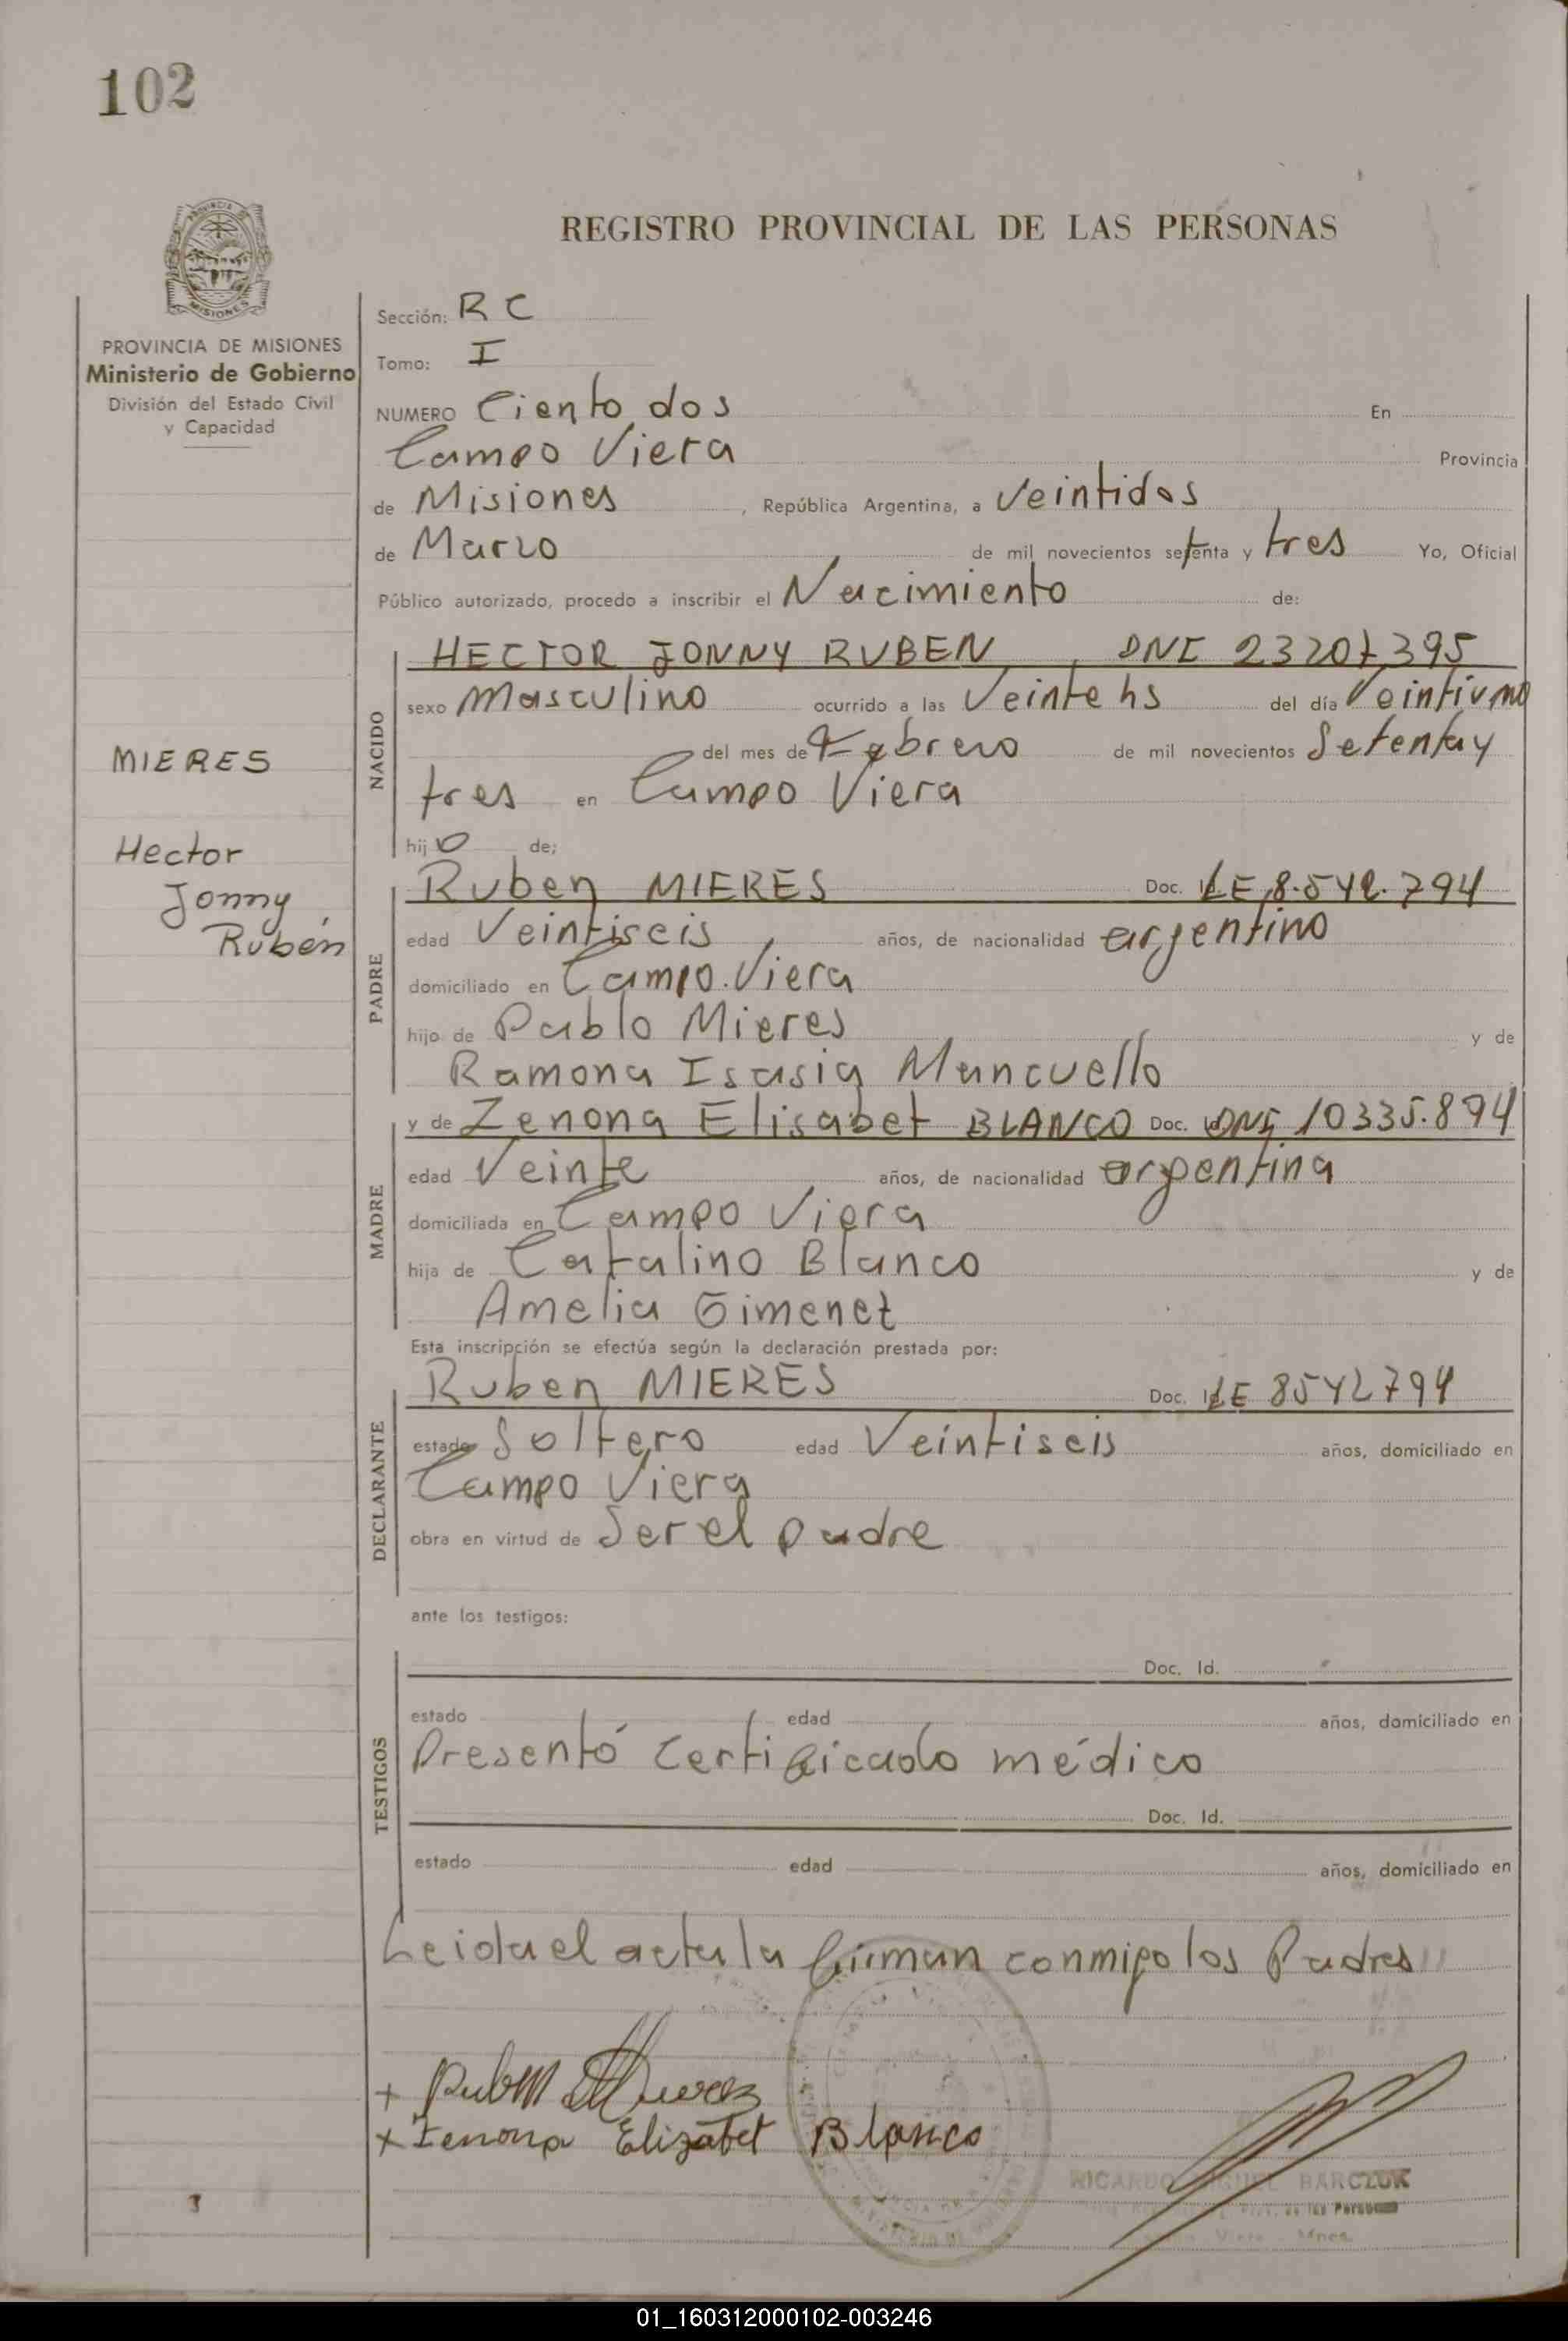 102
REGISTRO PROVINCIAL DE LAS PERSONAS
PROVINCIA DE
MISIONES
PROVINCIA DE MISIONES
Ministerio de Gobierno
División del Estado Civil
y Capacidad
MIERES
Hector
Jonny
Rubén
Sección: R C
Tomo: I
NUMERO Ciento dos En
Campo Viera Provincia
de Misiones , República Argentina, a Veintidos
de Marzo de mil novecientos setenta y tres Yo, Oficial
Público autorizado, procedo a inscribir el Nacimiento de:
NACIDO
HECTOR JONNY RUBEN , DNI 23207395
sexo Masculino ocurrido a las Veinte hs del día Veintiuno
del mes de Febrero de mil novecientos Setenta y
tres en Campo Viera
hijo de;
PADRE
Ruben MIERES Doc. LE 8.542.794
edad Veintiseis años, de nacionalidad argentino
domiciliado en Campo Viera
hijo de Pablo Mieres y de
Ramona Isasia Mancuello
MADRE
y de Zenona Elisabet BLANCO Doc. DNI 10335.894
edad Veinte años, de nacionalidad argentina
domiciliada en Campo Viera
hija de Catalino Blanco y de
Amelia Gimenez
Esta inscripción se efectúa según la declaración prestada por:
DECLARANTE
Ruben MIERES Doc. LE 8542794
estado Soltero edad Veintiseis años, domiciliado en
Campo Viera
obra en virtud de Ser el padre
ante los testigos:
TESTIGOS
Doc. Id.
estado edad años, domiciliado en
Presentó certificado médico
Doc. Id.
estado edad años, domiciliado en
Leida el acta la firman conmigo los Padres
+ Ruben Mieres
x Zenona Elizabet Blanco
RICARDO MIGUEL BARCZUK
de las Personas
Viera - Mnes.
01_160312000102-003246